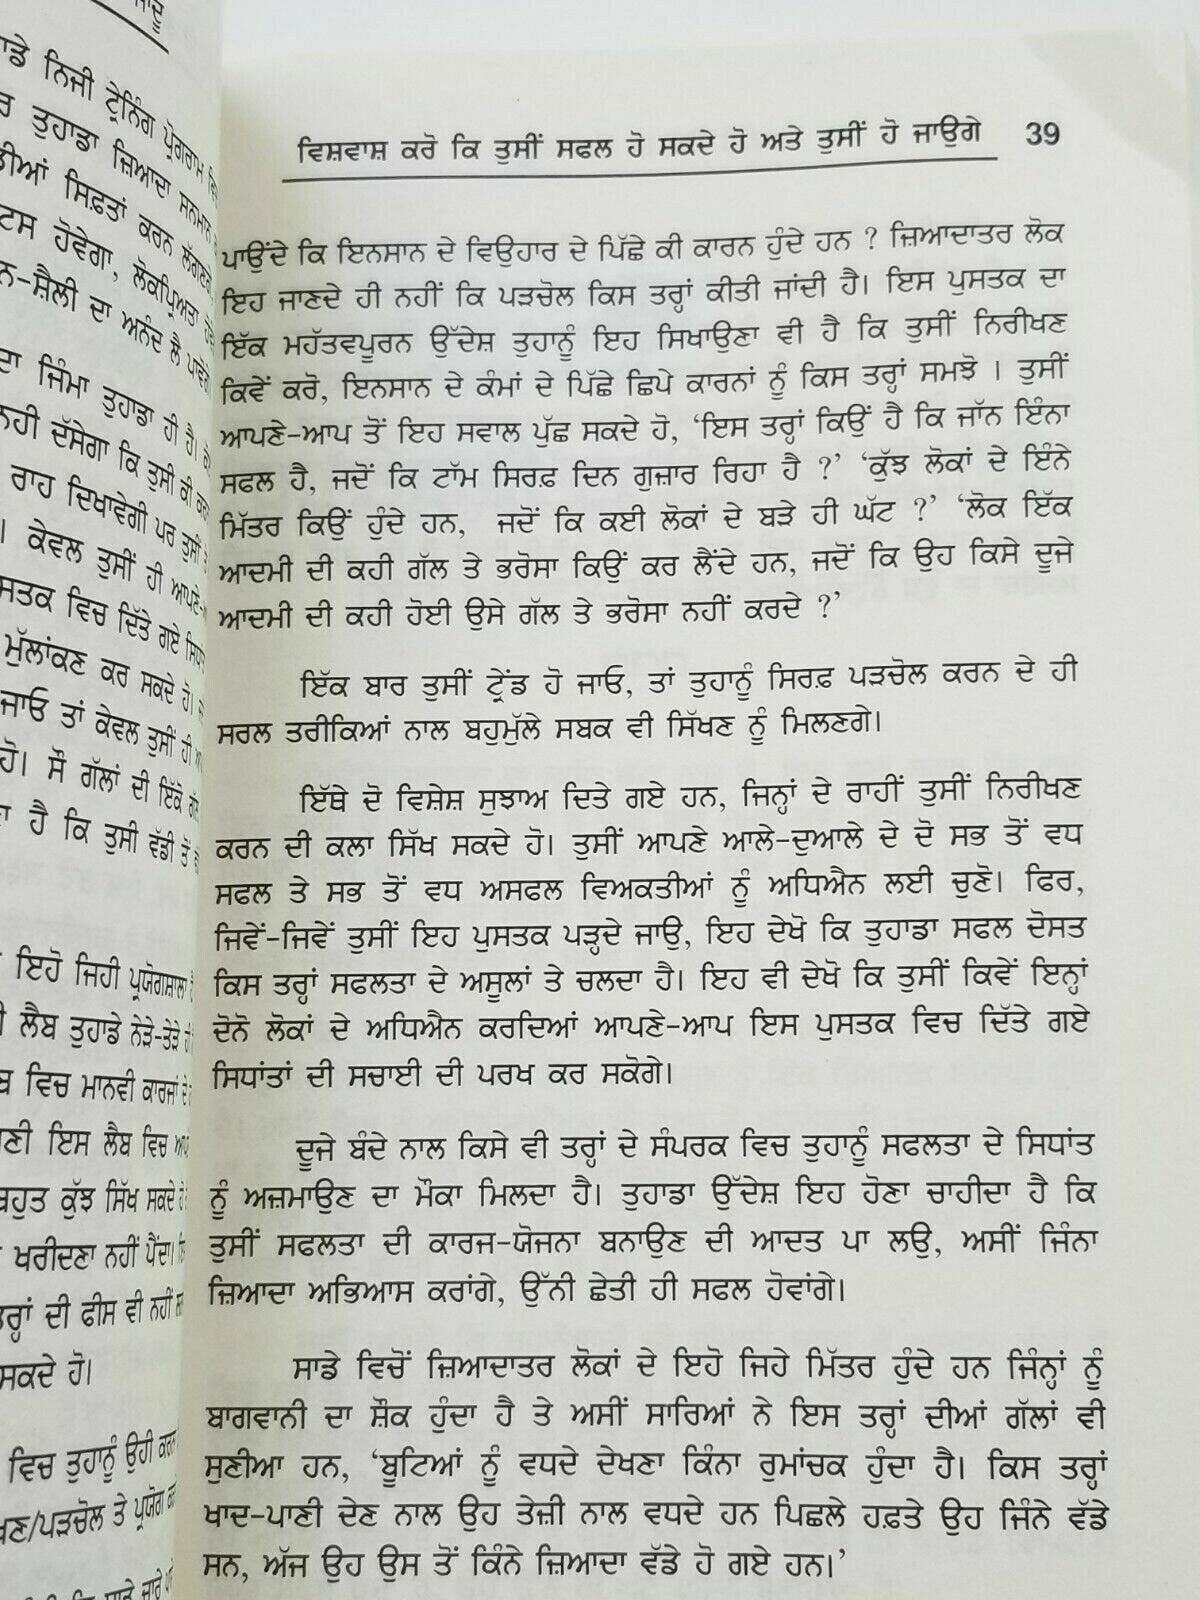 ਨਿਜੀ ਟ੍ਰੇਨਿੰਗ ਪ੍ਰੋਗਰਾਮ
ਤੁਹਾਡਾ ਜ਼ਿਆਦਾ ਸਨਮਾਨ
ਸਿਫ਼ਤਾਂ ਕਰਨ ਲੱਗਣਗੇ
ਹੋਵੇਗਾ, ਲੋਕਪ੍ਰਿਅਤਾ
ਦਾ ਅਨੰਦ ਲੈ ਪਾਵੋਗੇ
ਦਾ ਜਿੰਮਾ ਤੁਹਾਡਾ ਹੀ ਹੈ।
ਨਹੀ ਦੱਸੇਗਾ ਕਿ ਤੁਸੀ ਕੀ
ਰਾਹ ਦਿਖਾਵੇਗੀ ਪਰ ਤੁਸੀਂ
। ਕੇਵਲ ਤੁਸੀਂ ਹੀ
ਵਿਚ ਦਿੱਤੇ ਗਏ
ਮੁੱਲਾਂਕਣ ਕਰ ਸਕਦੇ ਹੋ।
ਜਾਓ ਤਾਂ ਕੇਵਲ ਤੁਸੀਂ ਹੀ
ਹੋ। ਸੌ ਗੱਲਾਂ ਦੀ ਇੱਕੋ
ਹੈ ਕਿ ਤੁਸੀ ਵੱਡੀ ਤੋਂ
ਇਹੋ ਜਿਹੀ ਪ੍ਰਯੋਗਸ਼ਾਲਾ
ਲੈਬ ਤੁਹਾਡੇ ਨੇੜੇ-ਤੇੜੇ
ਵਿਚ ਮਾਨਵੀ ਕਾਰਜਾਂ ਦੇ
ਇਸ ਲੈਬ ਵਿਚ
ਬਹੁਤ ਕੁੱਝ ਸਿੱਖ ਸਕਦੇ
ਖਰੀਦਣਾ ਨਹੀਂ ਪੈਂਦਾ।
ਦੀ ਫੀਸ ਵੀ ਨਹੀਂ
ਸਕਦੇ ਹੋ।
ਵਿਚ ਤੁਹਾਨੂੰ ਉਹੀ
ਤੇ ਪ੍ਰਯੋਗ
ਵਿਸ਼ਵਾਸ਼ ਕਰੋ ਕਿ ਤੁਸੀਂ ਸਫਲ ਹੋ ਸਕਦੇ ਹੋ ਅਤੇ ਤੁਸੀਂ ਹੋ ਜਾਉਗੇ 39
ਪਾਉਂਦੇ ਕਿ ਇਨਸਾਨ ਦੇ ਵਿਉਹਾਰ ਦੇ ਪਿੱਛੇ ਕੀ ਕਾਰਨ ਹੁੰਦੇ ਹਨ ? ਜ਼ਿਆਦਾਤਰ ਲੋਕ
ਇਹ ਜਾਣਦੇ ਹੀ ਨਹੀਂ ਕਿ ਪੜਚੋਲ ਕਿਸ ਤਰ੍ਹਾਂ ਕੀਤੀ ਜਾਂਦੀ ਹੈ। ਇਸ ਪੁਸਤਕ ਦਾ
ਇੱਕ ਮਹੱਤਵਪੂਰਨ ਉੱਦੇਸ਼ ਤੁਹਾਨੂੰ ਇਹ ਸਿਖਾਉਣਾ ਵੀ ਹੈ ਕਿ ਤੁਸੀਂ ਨਿਰੀਖਣ
ਕਿਵੇਂ ਕਰੋ, ਇਨਸਾਨ ਦੇ ਕੰਮਾਂ ਦੇ ਪਿੱਛੇ ਛਿਪੇ ਕਾਰਨਾਂ ਨੂੰ ਕਿਸ ਤਰ੍ਹਾਂ ਸਮਝੋ । ਤੁਸੀਂ
ਆਪਣੇ-ਆਪ ਤੋਂ ਇਹ ਸਵਾਲ ਪੁੱਛ ਸਕਦੇ ਹੋ, ‘ਇਸ ਤਰ੍ਹਾਂ ਕਿਉਂ ਹੈ ਕਿ ਜਾੱਨ ਇੰਨਾ
ਸਫਲ ਹੈ, ਜਦੋਂ ਕਿ ਟਾੱਮ ਸਿਰਫ਼ ਦਿਨ ਗੁਜ਼ਾਰ ਰਿਹਾ ਹੈ ?’ ‘ਕੁੱਝ ਲੋਕਾਂ ਦੇ ਇੰਨੇ
ਮਿੱਤਰ ਕਿਉਂ ਹੁੰਦੇ ਹਨ, ਜਦੋਂ ਕਿ ਕਈ ਲੋਕਾਂ ਦੇ ਬੜੇ ਹੀ ਘੱਟ ?’ ‘ਲੋਕ ਇੱਕ
ਆਦਮੀ ਦੀ ਕਹੀ ਗੱਲ ਤੇ ਭਰੋਸਾ ਕਿਉਂ ਕਰ ਲੈਂਦੇ ਹਨ, ਜਦੋਂ ਕਿ ਉਹ ਕਿਸੇ ਦੂਜੇ
ਆਦਮੀ ਦੀ ਕਹੀ ਹੋਈ ਉਸੇ ਗੱਲ ਤੇ ਭਰੋਸਾ ਨਹੀਂ ਕਰਦੇ ?’
ਇੱਕ ਬਾਰ ਤੁਸੀਂ ਟ੍ਰੇਂਡ ਹੋ ਜਾਓ, ਤਾਂ ਤੁਹਾਨੂੰ ਸਿਰਫ਼ ਪੜਚੋਲ ਕਰਨ ਦੇ ਹੀ
ਸਰਲ ਤਰੀਕਿਆਂ ਨਾਲ ਬਹੁਮੁੱਲੇ ਸਬਕ ਵੀ ਸਿੱਖਣ ਨੂੰ ਮਿਲਣਗੇ।
ਇੱਥੇ ਦੋ ਵਿਸ਼ੇਸ਼ ਸੁਝਾਅ ਦਿਤੇ ਗਏ ਹਨ, ਜਿਨ੍ਹਾਂ ਦੇ ਰਾਹੀਂ ਤੁਸੀਂ ਨਿਰੀਖਣ
ਕਰਨ ਦੀ ਕਲਾ ਸਿੱਖ ਸਕਦੇ ਹੋ। ਤੁਸੀਂ ਆਪਣੇ ਆਲੇ-ਦੁਆਲੇ ਦੇ ਦੋ ਸਭ ਤੋਂ ਵਧ
ਸਫਲ ਤੇ ਸਭ ਤੋਂ ਵਧ ਅਸਫਲ ਵਿਅਕਤੀਆਂ ਨੂੰ ਅਧਿਐਨ ਲਈ ਚੁਣੋ। ਫਿਰ,
ਜਿਵੇਂ-ਜਿਵੇਂ ਤੁਸੀਂ ਇਹ ਪੁਸਤਕ ਪੜ੍ਹਦੇ ਜਾਉ, ਇਹ ਦੇਖੋ ਕਿ ਤੁਹਾਡਾ ਸਫਲ ਦੋਸਤ
ਕਿਸ ਤਰ੍ਹਾਂ ਸਫਲਤਾ ਦੇ ਅਸੂਲਾਂ ਤੇ ਚਲਦਾ ਹੈ। ਇਹ ਵੀ ਦੇਖੋ ਕਿ ਤੁਸੀਂ ਕਿਵੇਂ ਇਨ੍ਹਾਂ
ਦੋਨੋ ਲੋਕਾਂ ਦੇ ਅਧਿਐਨ ਕਰਦਿਆਂ ਆਪਣੇ-ਆਪ ਇਸ ਪੁਸਤਕ ਵਿਚ ਦਿੱਤੇ ਗਏ
ਸਿਧਾਂਤਾਂ ਦੀ ਸਚਾਈ ਦੀ ਪਰਖ ਕਰ ਸਕੋਗੇ।
ਦੂਜੇ ਬੰਦੇ ਨਾਲ ਕਿਸੇ ਵੀ ਤਰ੍ਹਾਂ ਦੇ ਸੰਪਰਕ ਵਿਚ ਤੁਹਾਨੂੰ ਸਫਲਤਾ ਦੇ ਸਿਧਾਂਤ
ਨੂੰ ਅਜ਼ਮਾਉਣ ਦਾ ਮੌਕਾ ਮਿਲਦਾ ਹੈ। ਤੁਹਾਡਾ ਉੱਦੇਸ਼ ਇਹ ਹੋਣਾ ਚਾਹੀਦਾ ਹੈ ਕਿ
ਤੁਸੀਂ ਸਫਲਤਾ ਦੀ ਕਾਰਜ-ਯੋਜਨਾ ਬਨਾਉਣ ਦੀ ਆਦਤ ਪਾ ਲਉ, ਅਸੀਂ ਜਿੰਨਾ
ਜ਼ਿਆਦਾ ਅਭਿਆਸ ਕਰਾਂਗੇ, ਉੱਨੀ ਛੇਤੀ ਹੀ ਸਫਲ ਹੋਵਾਂਗੇ।
ਸਾਡੇ ਵਿਚੋਂ ਜ਼ਿਆਦਾਤਰ ਲੋਕਾਂ ਦੇ ਇਹੋ ਜਿਹੇ ਮਿੱਤਰ ਹੁੰਦੇ ਹਨ ਜਿੰਨ੍ਹਾਂ ਨੂੰ
ਬਾਗਵਾਨੀ ਦਾ ਸ਼ੌਕ ਹੁੰਦਾ ਹੈ ਤੇ ਅਸੀਂ ਸਾਰਿਆਂ ਨੇ ਇਸ ਤਰ੍ਹਾਂ ਦੀਆਂ ਗੱਲਾਂ ਵੀ
ਸੁਣੀਆ ਹਨ, ‘ਬੂਟਿਆਂ ਨੂੰ ਵਧਦੇ ਦੇਖਣਾ ਕਿੰਨਾ ਰੁਮਾਂਚਕ ਹੁੰਦਾ ਹੈ। ਕਿਸ ਤਰ੍ਹਾਂ
ਖਾਦ-ਪਾਣੀ ਦੇਣ ਨਾਲ ਉਹ ਤੇਜ਼ੀ ਨਾਲ ਵਧਦੇ ਹਨ ਪਿਛਲੇ ਹਫ਼ਤੇ ਉਹ ਜਿੰਨੇ ਵੱਡੇ
ਸਨ, ਅੱਜ ਉਹ ਉਸ ਤੋਂ ਕਿੰਨੇ ਜ਼ਿਆਦਾ ਵੱਡੇ ਹੋ ਗਏ ਹਨ।’